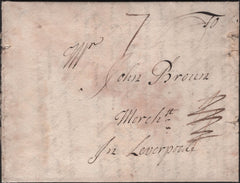 7 To
Mr
John Brown
Mercht
In Leverpool